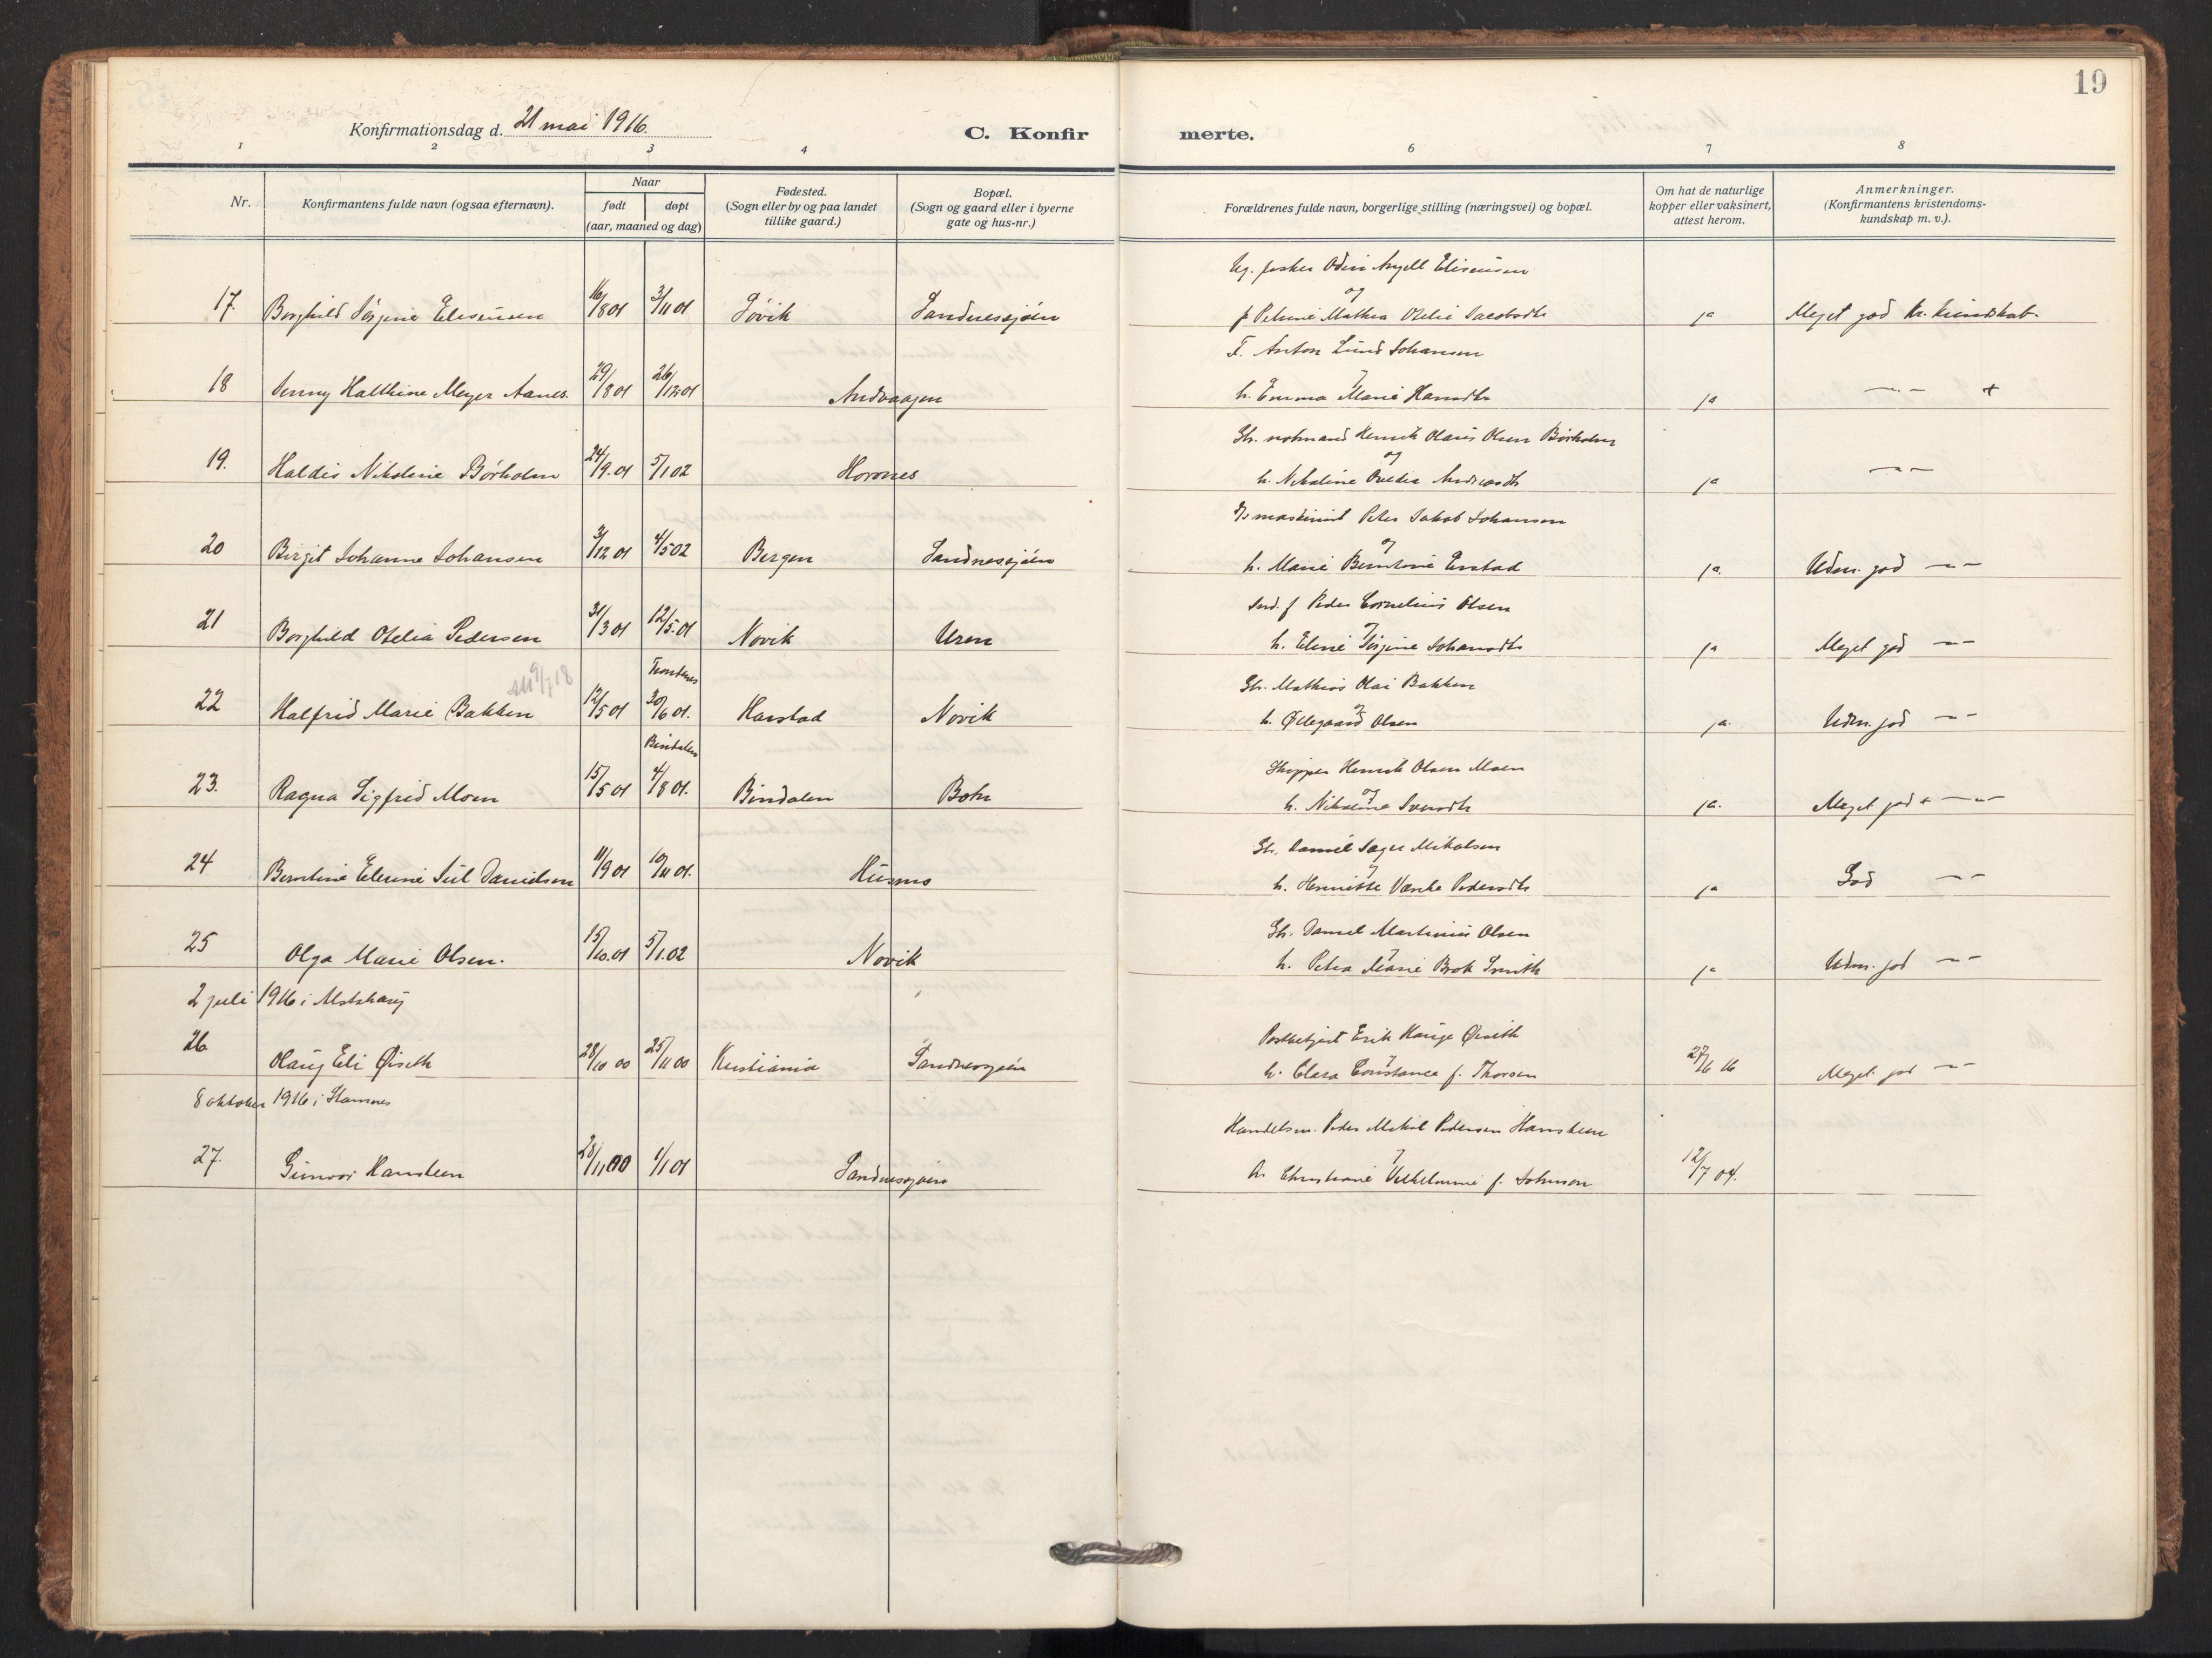 19
Konfirmationsdag d. 21 mai 1916.
C. Konfirmerte.
1 2 3 4 6 7 8
Nr.
Konfirmantens fulde navn (ogsaa efternavn).
Naar
født
døpt
(aar, maaned og dag)
Fødested.
(Sogn eller by og paa landet
tillike gaard.)
Bopæl.
(Sogn og gaard eller i byerne
gate og hus-nr.)
Forældrenes fulde navn, borgerlige stilling (næringsvei) og bopæl.
Om hat de naturlige
kopper eller vaksinert,
attest herom.
Anmerkninger.
(Konfirmantens kristendoms-
kundskap m. v.).
Ug. fisker Odin Eliseussen
og
17. Borghild Jörgine Eliseussen 16/8 01 3/11 01 Søvik Sandnessjöen p Petrine Mathea Otelie Jacobsdtr ja Meget god kr. kundskab.
F. Anton Lund Johansen
18 Jenny Halthine Meyer Aanes 29/8 01 26/12 01 Andvaagen h. Emma Marie Hansdtr ja — " — +
Gbr. notmand Henrik Olaus Olsen Börholm
og
19. Haldis Nikoline Börholm 24/9. 01 5/1 02 Hornes h. Nikoline Andreasdtr ja — " —
D/s maskinist Peter Jakob Johansen
og
20 Birgit Johanne Johansen 3/12 01 4/5 02 Bergen Sandnessjöen h. Marie Berntine Enstad ja. Udm. god — " —
Ind. f Peder Cornelius Olsen
21 Borghild Otelia Pedersen 31/3 01 12/5. 01 Novik Uren h. Eline Jörgine Johansdtr ja Meget god — " —
9/7 18
Trondenes
Gbr. Mathias Olai Bakken
og
22 Halfrid Marie Bakken 12/5 01 30/6 01. Harstad Novik h. Øllegaard Olsen ja. Udm. god — " —
Bindalen
Skipper Henrik Olsen Moen
og
23. Ragna Sigfrid Moen 15/5 01 4/8 01. Bindalen Botn h. Nikoline Svensdtr ja. Meget god + — " —
Gbr. Daniel Mikalsen
24 Berntine Elenine Juul Danielsen 11/9 01 10/11 01. Husmo h. Henriette Værike Pedersdtr ja God — " —
Gbr. Daniel Martinus Olsen
25 Olga Marie Olsen. 15/10. 01 5/1. 02 Novik h. Petra Marie Brok Smith ja Udm. god — " —
2 juli 1916 i Alstahaug
Postbetjent Erik Hauge Øiseth
26 Olaug Eli Øiseth 28/10 00 25/11 00 Kristiania Sandnessjöen h. Clara Constance f. Thorsen 27/6 16 Meget god — " —
8 oktober 1916 i Stamnes
Handelsm. Peder Mikal Pedersen Hansteen
27. Gunvor Hansteen 28/11 00 1/1 01 Sandnessjöen h. Christiane Vilhelmine f. Johnson 12/7 04. — — —